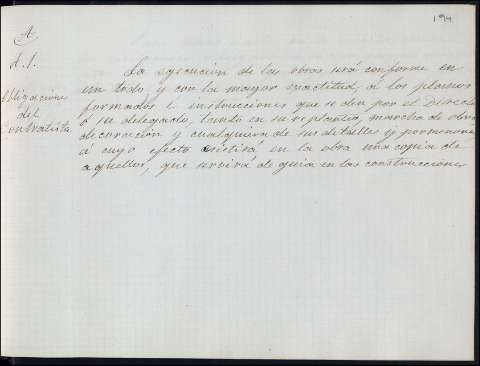 194
A
d. 1.
Obligacion
del
Contratista
La ejecucion de las obras será conforme en
un todo y con la mayor exactitud, á los planos
formados é instrucciones que se den por el Director
ó su delegado, tanto en su replanteo, marcha de obra
decoracion y cualquiera de sus detalles y pormenores
á cuyo efecto existirá en la obra una copia de
aquellos, que servirá de guia en las construcciones